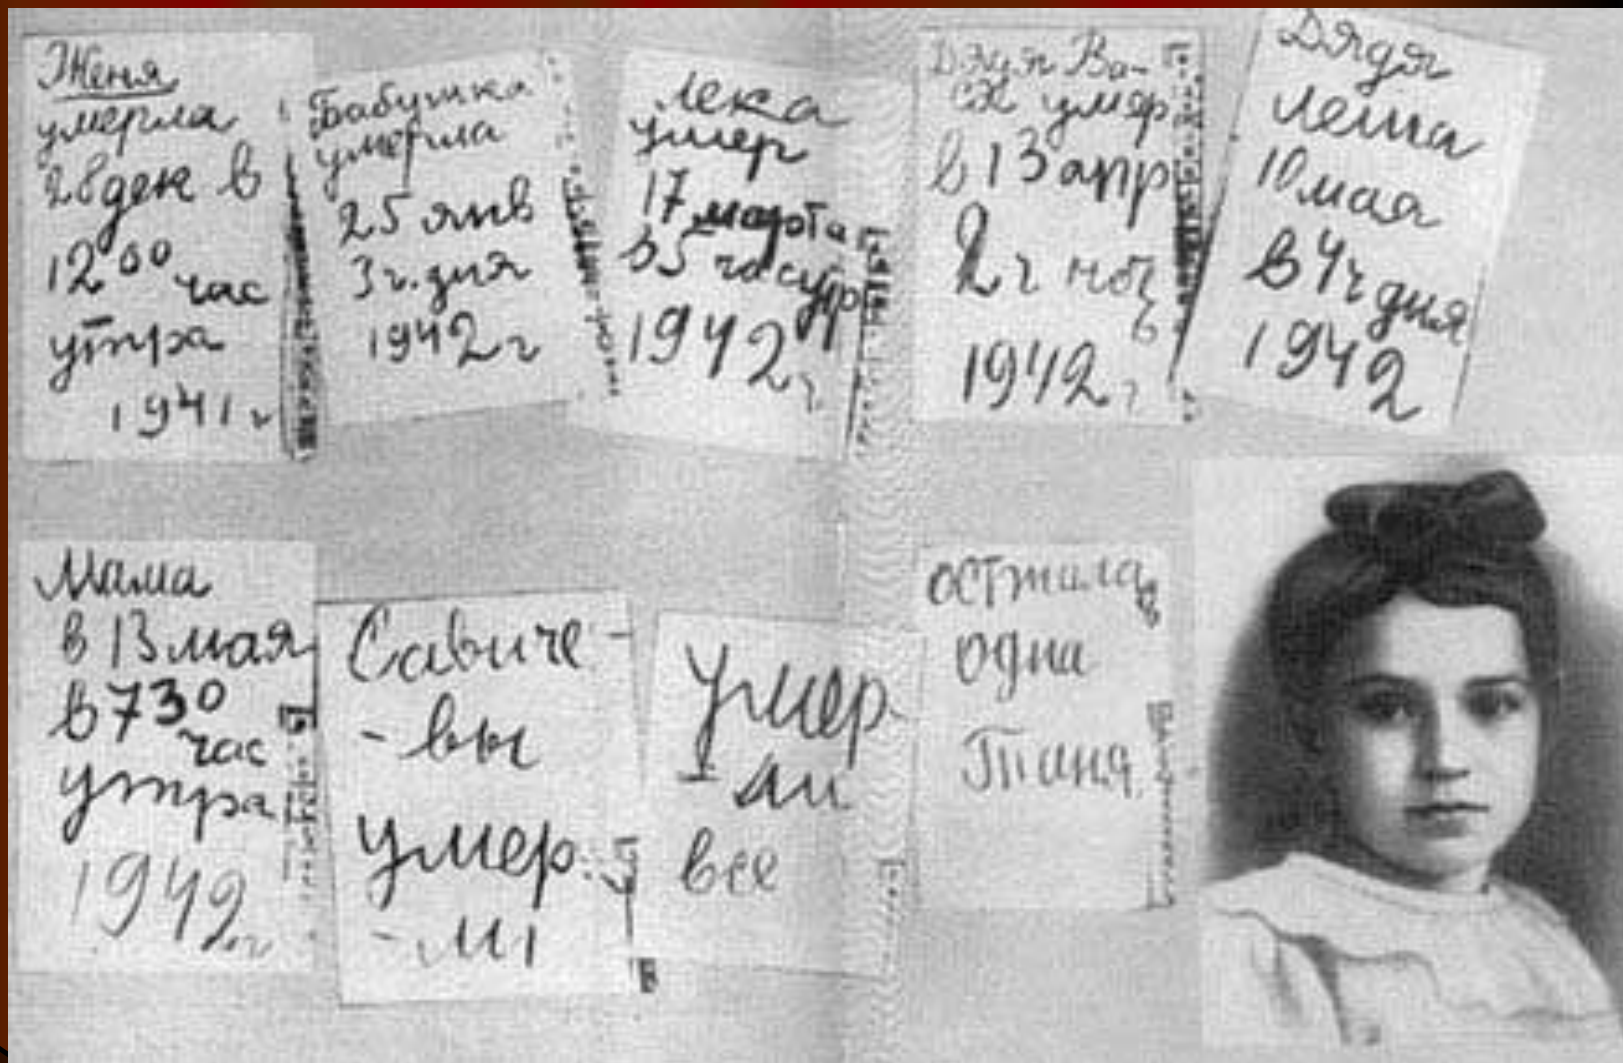 Женя
умерла
28 дек в
12⁰⁰ час
утра
1941 г
Бабушка
умерла
25 янв
3 ч. дня
1942 г
Лека
умер
17 марта
в 5 час утр
1942 г
Дядя Ва-
ся умер
в 13 апр
2 ч ноч
1942 г
Дядя
Леша
10 мая
в 4 ч дня
1942
Мама
в 13 мая
в 7³⁰
час
утра
1942 г
Савиче-
-вы
умер
-ли
Умер
-ли
все
осталась
одна
Таня